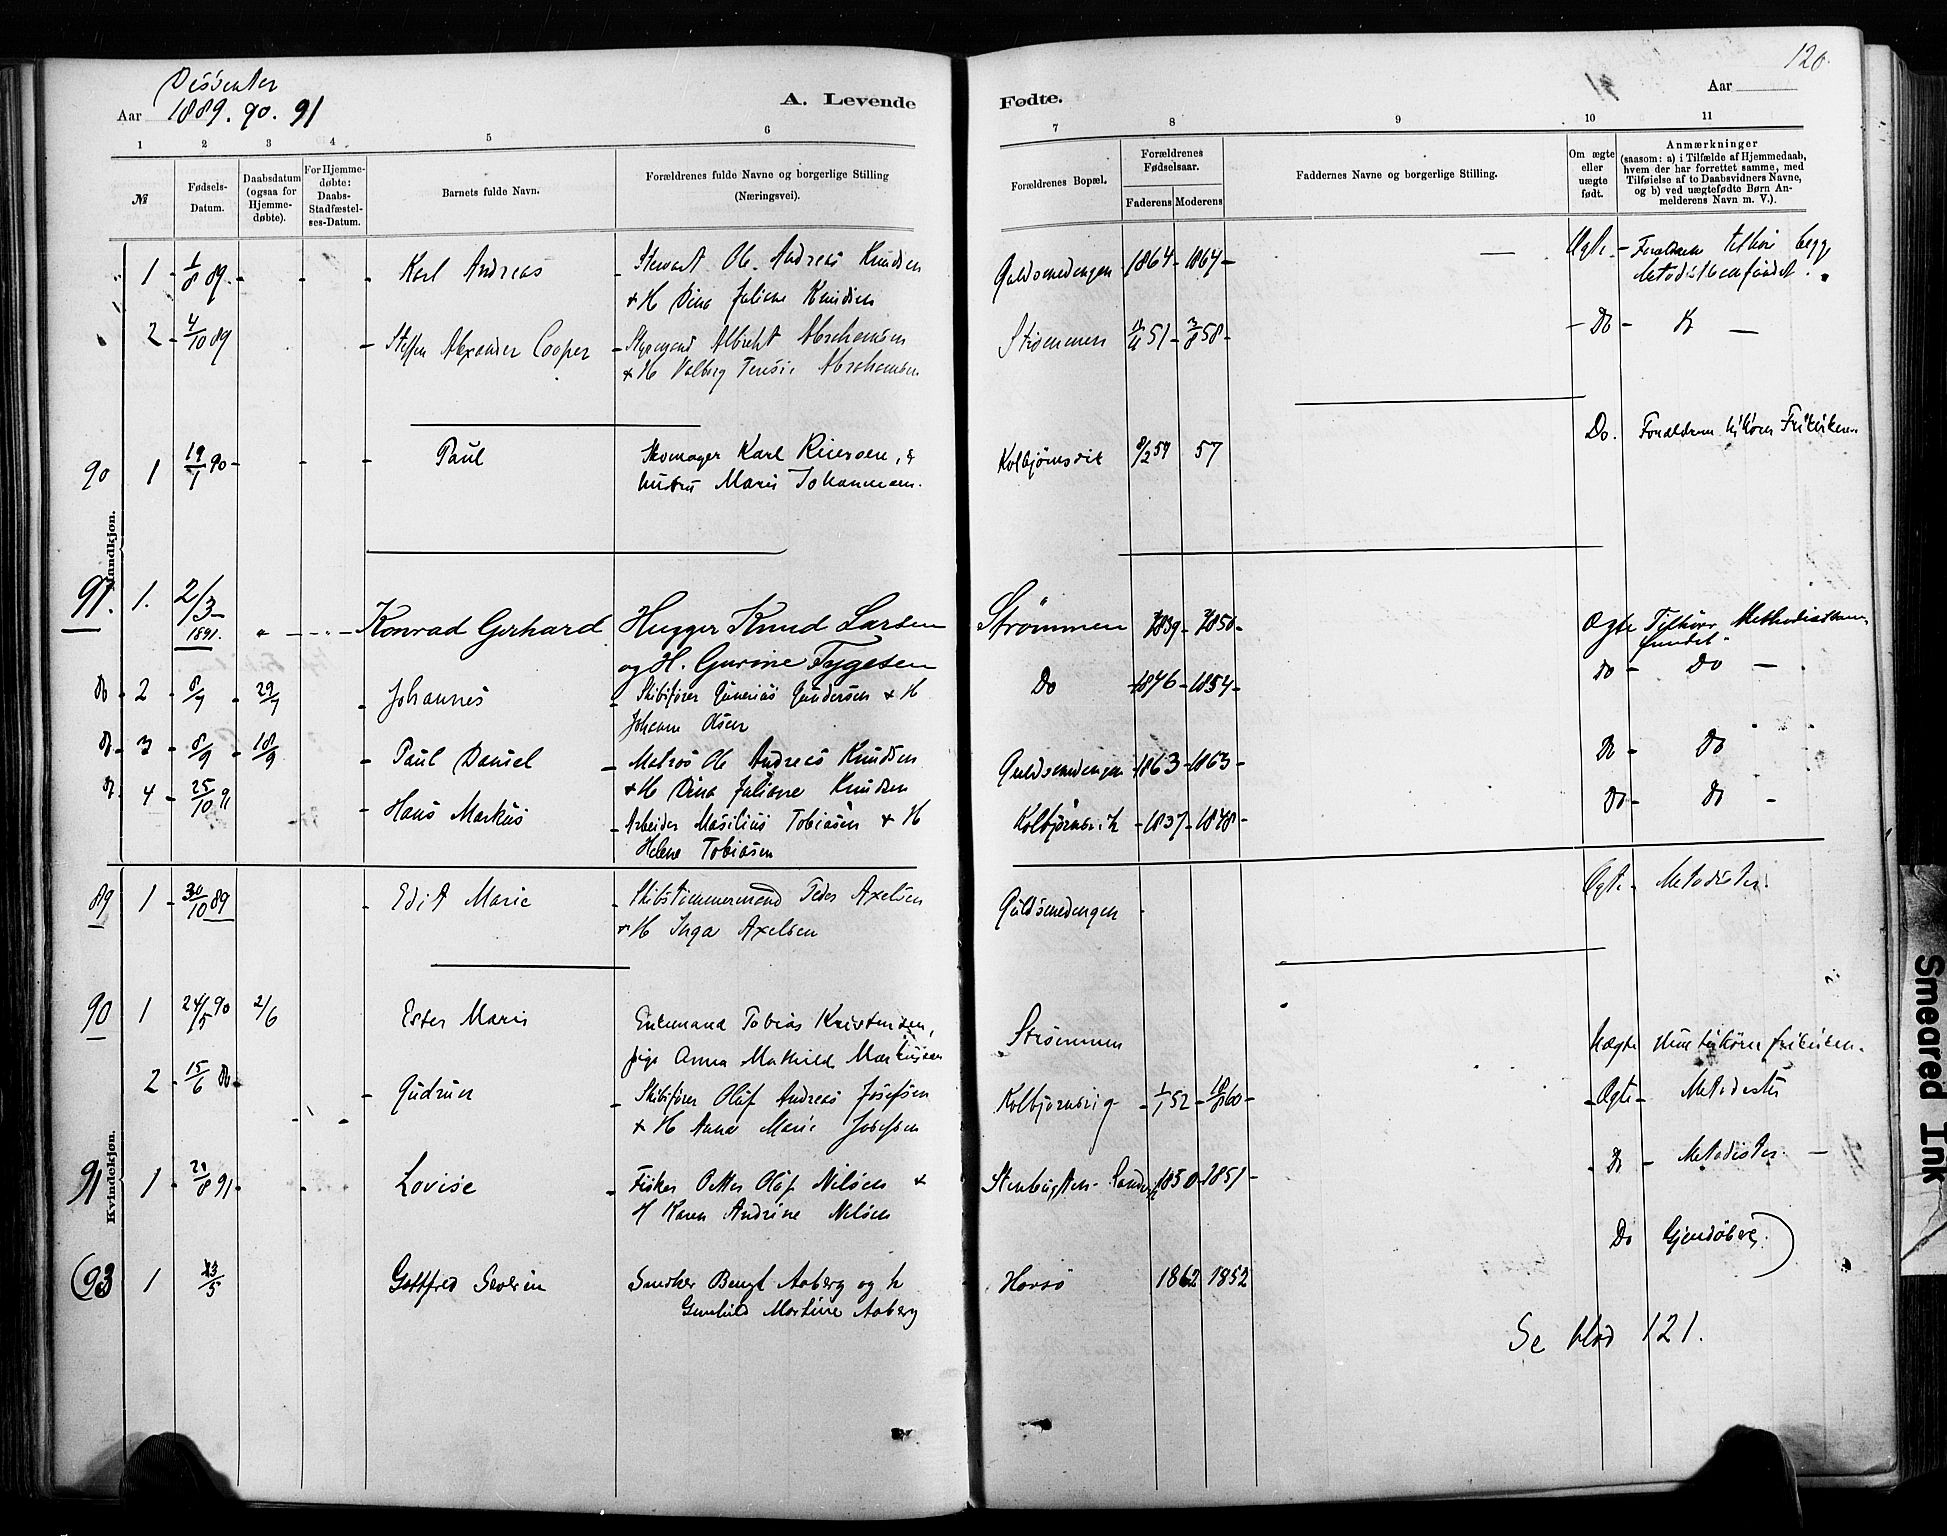 Dissenter
Aar 1889. 90. 91
A. Levende
Fødte.
Aar
120.
1 2 3 4 5 6 7 8 9 10 11
№
Fødsels-Datum.
Daabsdatum (ogsaa for Hjemmedøbte).
For Hjemmedøbte: Daabs-Stadfæstelses-Datum.
Barnets fulde Navn.
Forældrenes fulde Navne og borgerlige Stilling (Næringsvei).
Forældrenes Bopæl.
Forældrenes Fødselsaar.
Faderens Moderens
Faddernes Navne og borgerlige Stilling.
Om ægte eller uægte født.
Anmærkninger
(saasom: a) i Tilfælde af Hjemmedaab, hvem der har forrettet samme, med Tilføielse af to Daabsvidners Navne, og b) ved uægtefødte Børn Anmelderens Navn m. V.).
Mandkjøn.
1 1/8 89. Karl Andreas Stewart Ole Andreas Knudsen Guldsmedengen 1864 1864 Ægte Forældrene tilhøre begge
& H Dina Juliane Knudsen Metodistsamfundet.
2 4/10 89 Steffen Alexander Cooper Styrmand Albreht Abrahamsen Strømmen 51 58 Do D
& H Valborg Terisie Abrahamsen
90 1 19/7 90 Paul Skomager Karl Reiersen, & Kolbjørnsvik 8/2 59 57 Do. Forældrene tilhører Frikirken
hustru Maria Johannesen.
91. 1. 2/3 1891. Konrad Gerhard Hugger Knud Larsen Strømmen 1839 1850 Ægte Tilhører Methodistsamfundet
og H. Gurine Tygesen
Do 2 8/7 29/7 Johannes Skibsfører Gunerius Gundersen & H Do 1846 1854 Do Do
Johanne Olsen
Do 3 8/9 18/9 Paul Daniel Matros Ole Andreas Knudsen Guldsmedengen 1863 1863 Do Do
& H Dina Juliane Knudsen
Do 4 25/10 91 Hans Markus Arbeider Masilius Tobiasen & H Kolbjørnsvik 1837 1848 Do Do
Helene Tobiasen
Kvindekjøn.
89 1 30/10 89 Edit Marie Skibstømmermand Peder Axelsen Guldsmedengen Ægte Metodister
& H Inga Axelsen
90 1 24/5 90 2/6 Ester Marie Enkemand Tobias Kristensen, Strømmen Uægte tilhører frikirken.
pige Anna Mathilde Markussen
2 15/6 Do Gudrun Skibsfører Oluf Andreas Josefsen Kolbjørnsvig 1/1 52 18/8 60 Ægte Metodister
& H Anna Marie Josefsen
91 1 21/8 91 Lovise Fisker Peder Oluf Nilsen & Stenbugten 1850 1851 Do Metodister
H Karen Andrine Nilsen
(93 1 13/5 Gottfred Severin Snedker Bengt Aaberg og h Havsø 1862 1852 Do Gjendøbere)
Gunhild Martine Aaberg
Se blad 121.
Smeared Ink